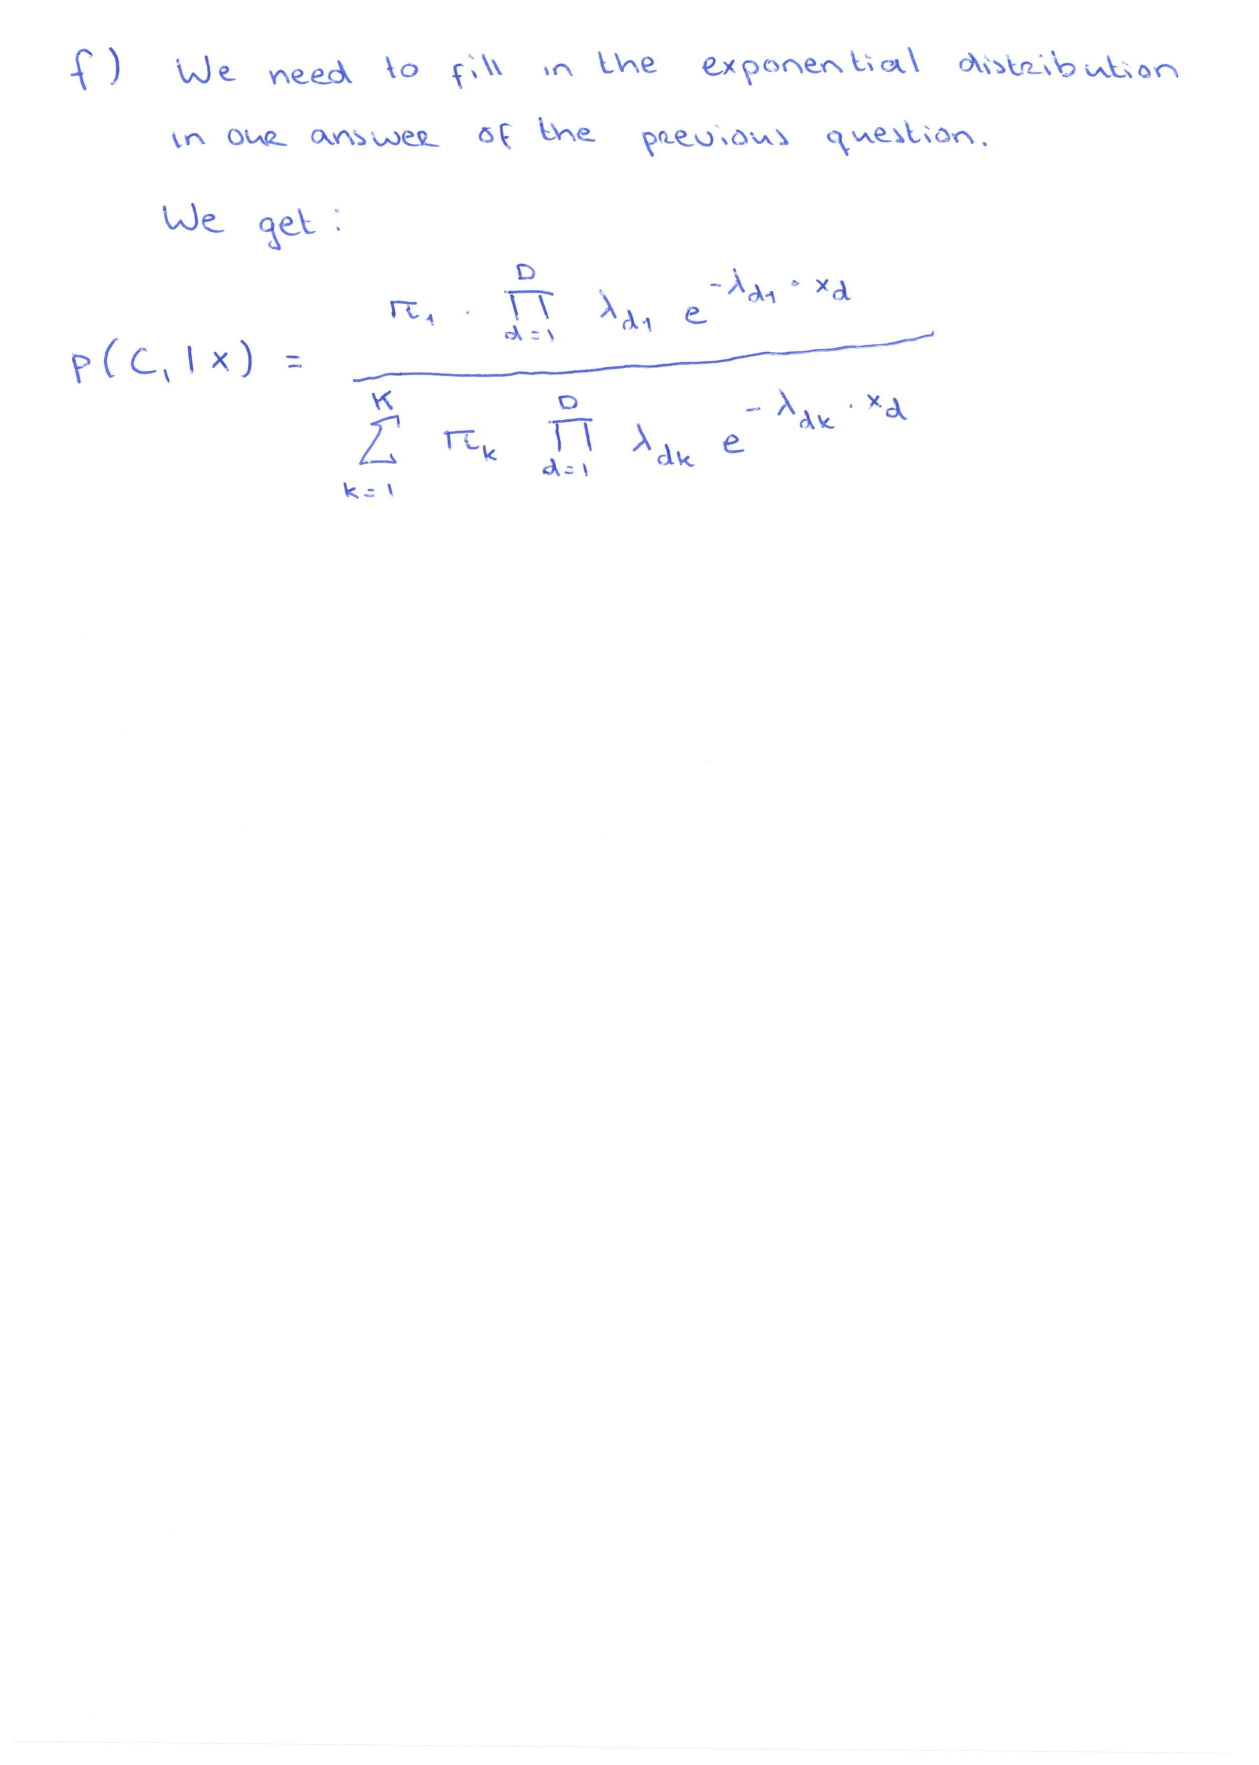 f) We need to fill in the exponential distribution
in our answer of the previous question.
We get:
p(C₁|x) = \frac{π₁ · \prod_{d=1}^{D} λ_{d1} e^{-λ_{d1} · x_d}}{\sum_{k=1}^{K} π_k \prod_{d=1}^{D} λ_{dk} e^{-λ_{dk} · x_d}}